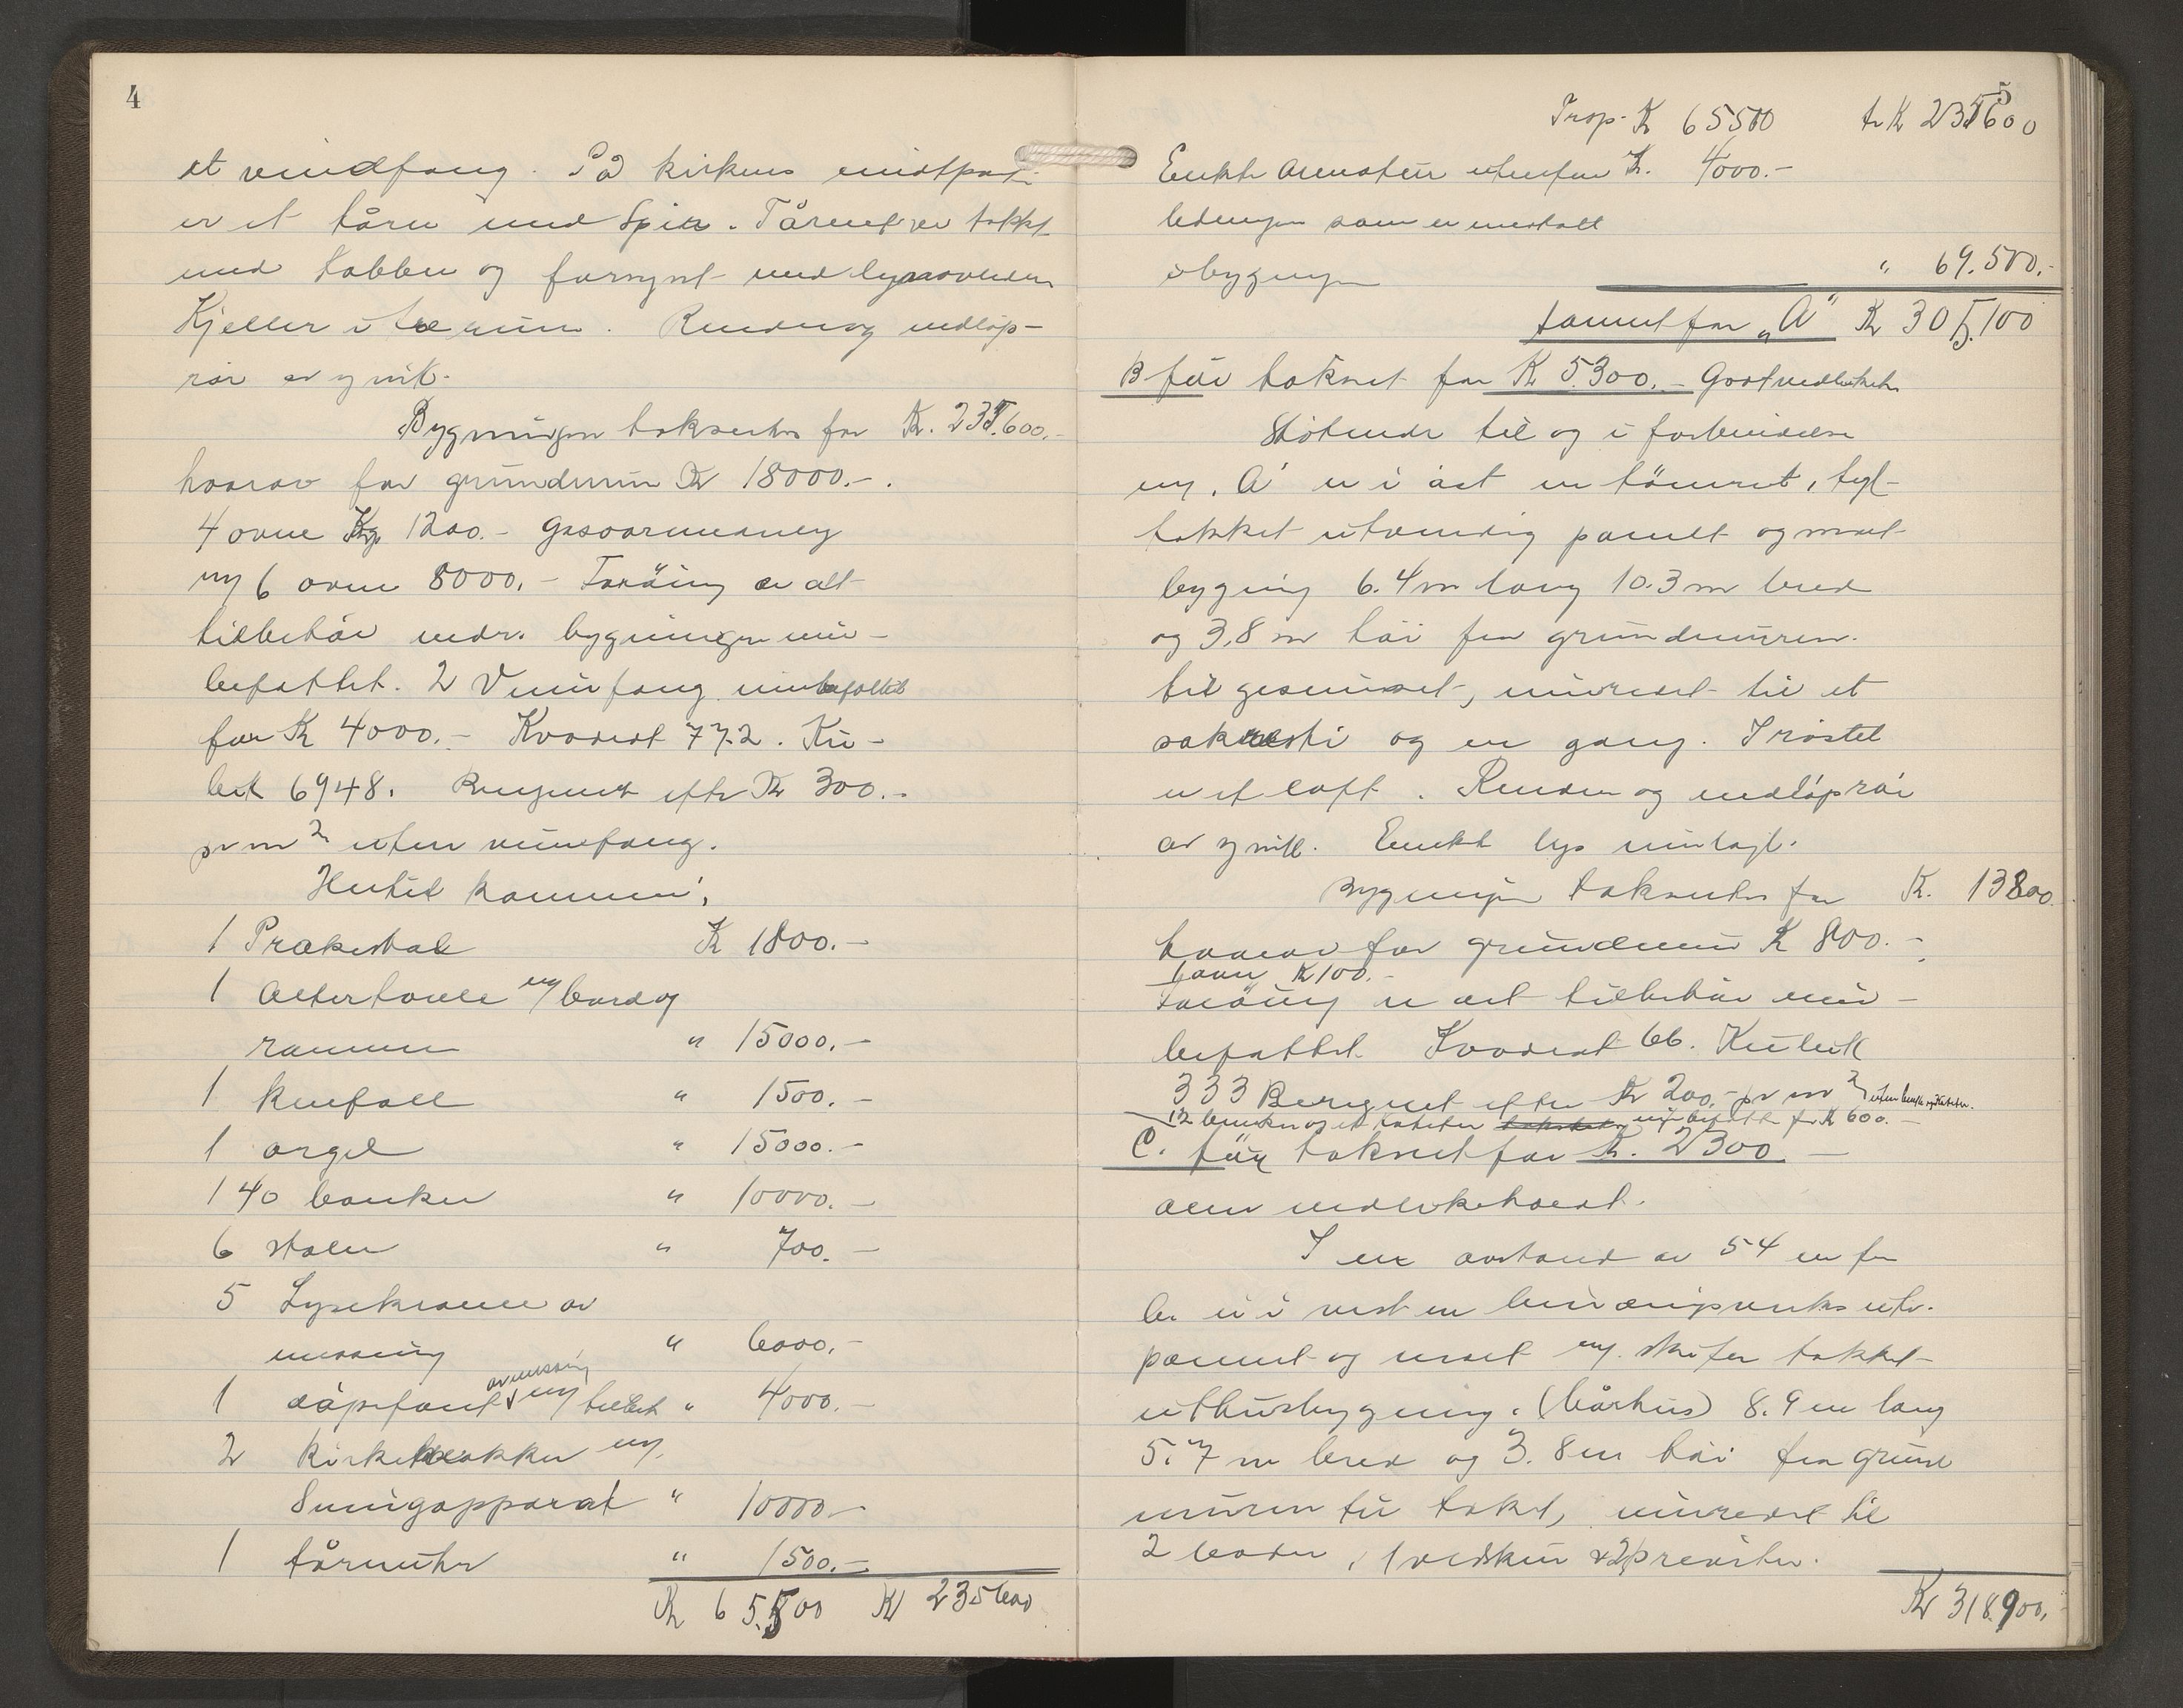 4
et vindfang. På kirkens midtparti
er et tårn med Spir. Tårnet er tækket
med kobber og forsynt med lynavleder
Kjeller i rum. Render og nedløp-
rør av zink.
Bygningen takseres for Kr. 235.600.-
hvorav for grundmur Kr 18000.-.
4 ovne Kr 1200.-
m/ 6 ovne 8000.- Forøvrig er alt
tilbehør vedr. bygningen inn-
befattet. 2 Vindfang innbefattet
for Kr 4000.- Kvadrat 772. Ku-
bik 6948. Beregnet efter Kr 300.-
pr m² uten vindfang.
Hertil kommer:
1 Prækestol Kr 1800.-
1 Altertavle m/ bord og
ramme " 15000.-
1 knefall " 1500.-
1 orgel " 15000.-
140 benker " 10000.-
6 stoler " 700.-
5 Lysekroner av
messing " 6000.-
1 døpefont av messing m/ tilbeh " 4000.-
2 kirkeklokker m/
Ringeapparat " 10000.-
1 tårnuhr " 1500.-
Kr 65.500 Kr 235600
5
Trsp. Kr 65500 tr Kr 235600
Enkle Armatur utenfor Kr. 4000.-
ledningen som er innstall
i bygningen " 69.500.-
samlet for "A" Kr 305.100
B før taksert for Kr 5300.- Godt vedlikeh.
Støtende til og i forbindelse
m/ "A" er i øst en tømret, tegl-
tækket utvendig panelt og malt
bygning 6.4 m lang 10.3 m bred
og 3,8 m høi fra grundmuren
til gesimset, innredet til et
sakresti og en gang. I røstet
er et loft. Render og nedløprør
av zink. Elektr. lys innlagt.
Bygningen takseres for Kr. 13800.
hvorav for grundmur Kr 800.-
1 ovn Kr 100.-
Forøvrig er alt tilbehør inn-
befattet. Kvadrat 66. Kubik
333 Beregnet efter Kr 200.- pr m² uten benker og kateter.
12 benker og et kateter innbefattet for Kr 600.-
C. før taksert for Kr. 2300.-
Alm vedlikeholdt.
I en avstand av 54 m fra
b er i vest en bindingsverks utv.
panelt og malt m/ skifer tækket
uthusbygning. (bårhus) 8.9 m lang
5.7 m bred og 3.8 m høi fra grund
muren til taket, innredet til
2 boder, 1 vedskur & 2 priveter.
Kr 318.900.